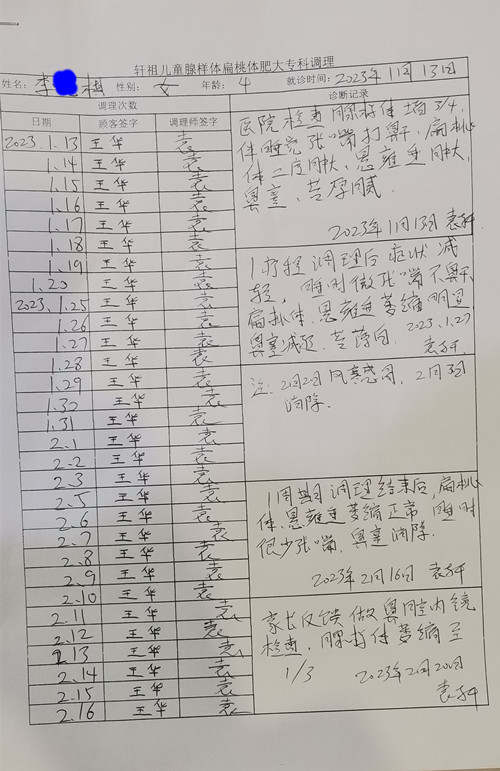 轩祖儿童腺样体扁桃体肥大专科调理
姓名: 李 性别: 女 年龄: 4 就诊时间: 2023年1月13日
调理次数 诊断记录
日期 顾客签字 调理师签字
2023.1.13 王华 袁
1.14 王华 袁
1.15 王华 袁
1.16 王华 袁
1.17 王华 袁
1.18 王华 袁
1.19 王华 袁
1.20 王华 袁
2023.1.25 王华 袁
1.26 王华 袁
1.27 王华 袁
1.28 王华 袁
1.29 王华 袁
1.30 王华 袁
1.31 王华 袁
2.1 王华 袁
2.2 王华 袁
2.3 王华 袁
2.5 王华 袁
2.6 王华 袁
2.7 王华 袁
2.8 王华 袁
2.9 王华 袁
2.10 王华 袁
2.11 王华 袁
2.12 王华 袁
2.13 王华 袁
2.14 王华 袁
2.15 王华 袁
2.16 王华 袁
医院检查腺样体堵3/4,
伴睡觉张嘴打鼾,扁桃
体二度肿大,悬雍垂肿大,
鼻塞、苔厚腻.
2023年1月13日 袁
1疗程调理后症状减
轻,睡时微张嘴不鼾,
扁桃体.悬雍垂萎缩明显
鼻塞减轻.苔薄白. 2023.1.27
袁
注:2月2日风寒感冒,2月3日
消除.
1周期调理结束后,扁桃
体.悬雍垂萎缩正常,睡时
很少张嘴.鼻塞消除.
2023年2月16日 袁
家长反馈做鼻腔内镜
检查,腺样体萎缩至
1/3 2023年2月20日
袁